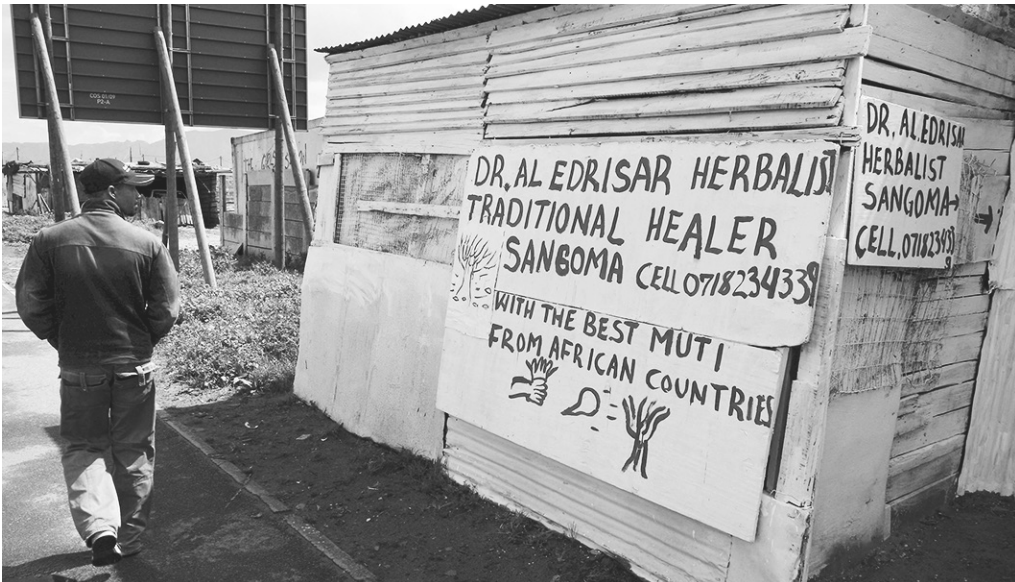 COS 05/09
P2-A
DR. AL EDRISAR HERBALIST
TRADITIONAL HEALER
SANGOMA CELL 0718234339
WITH THE BEST MUTI
FROM AFRICAN COUNTRIES
DR. AL EDRISAR
HERBALIST
SANGOMA→
CELL.0718234339